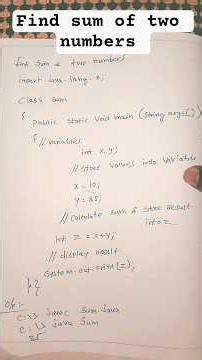 Find sum of two
numbers
Find Sum of two numbers
import java.lang.*;
Class Sum
{ public static void main (String args[])
{ // variables
int x, y;
// store values into variables
x = 10;
y = 25;
// calculate sum & store result
into z
int z = x+y;
// display result
System.out.print(z);
}}
O/p:-
C:\> javac Sum.java
C:\> java Sum